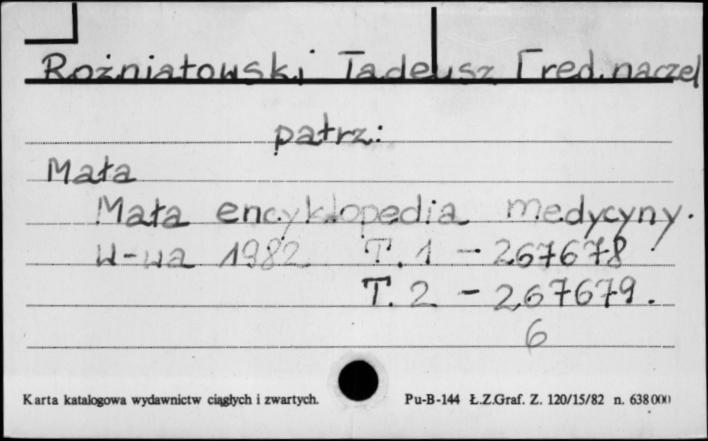 Rożniatowski Tadeusz [red.naczel
patrz:
Mała
Mała encyklopedia medycyny.
W-wa 1982 T.1 - 267678
T.2 - 267679.
6
Karta katalogowa wydawnictw ciągłych i zwartych. Pu-B-144 Ł.Z.Graf. Z. 120/15/82 n. 638000